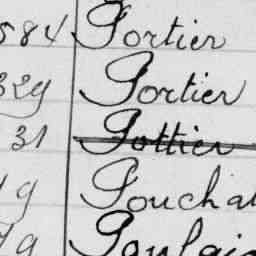 584 Portier
329 Portier
31 Pottier
9 Poucha
9 Poulai